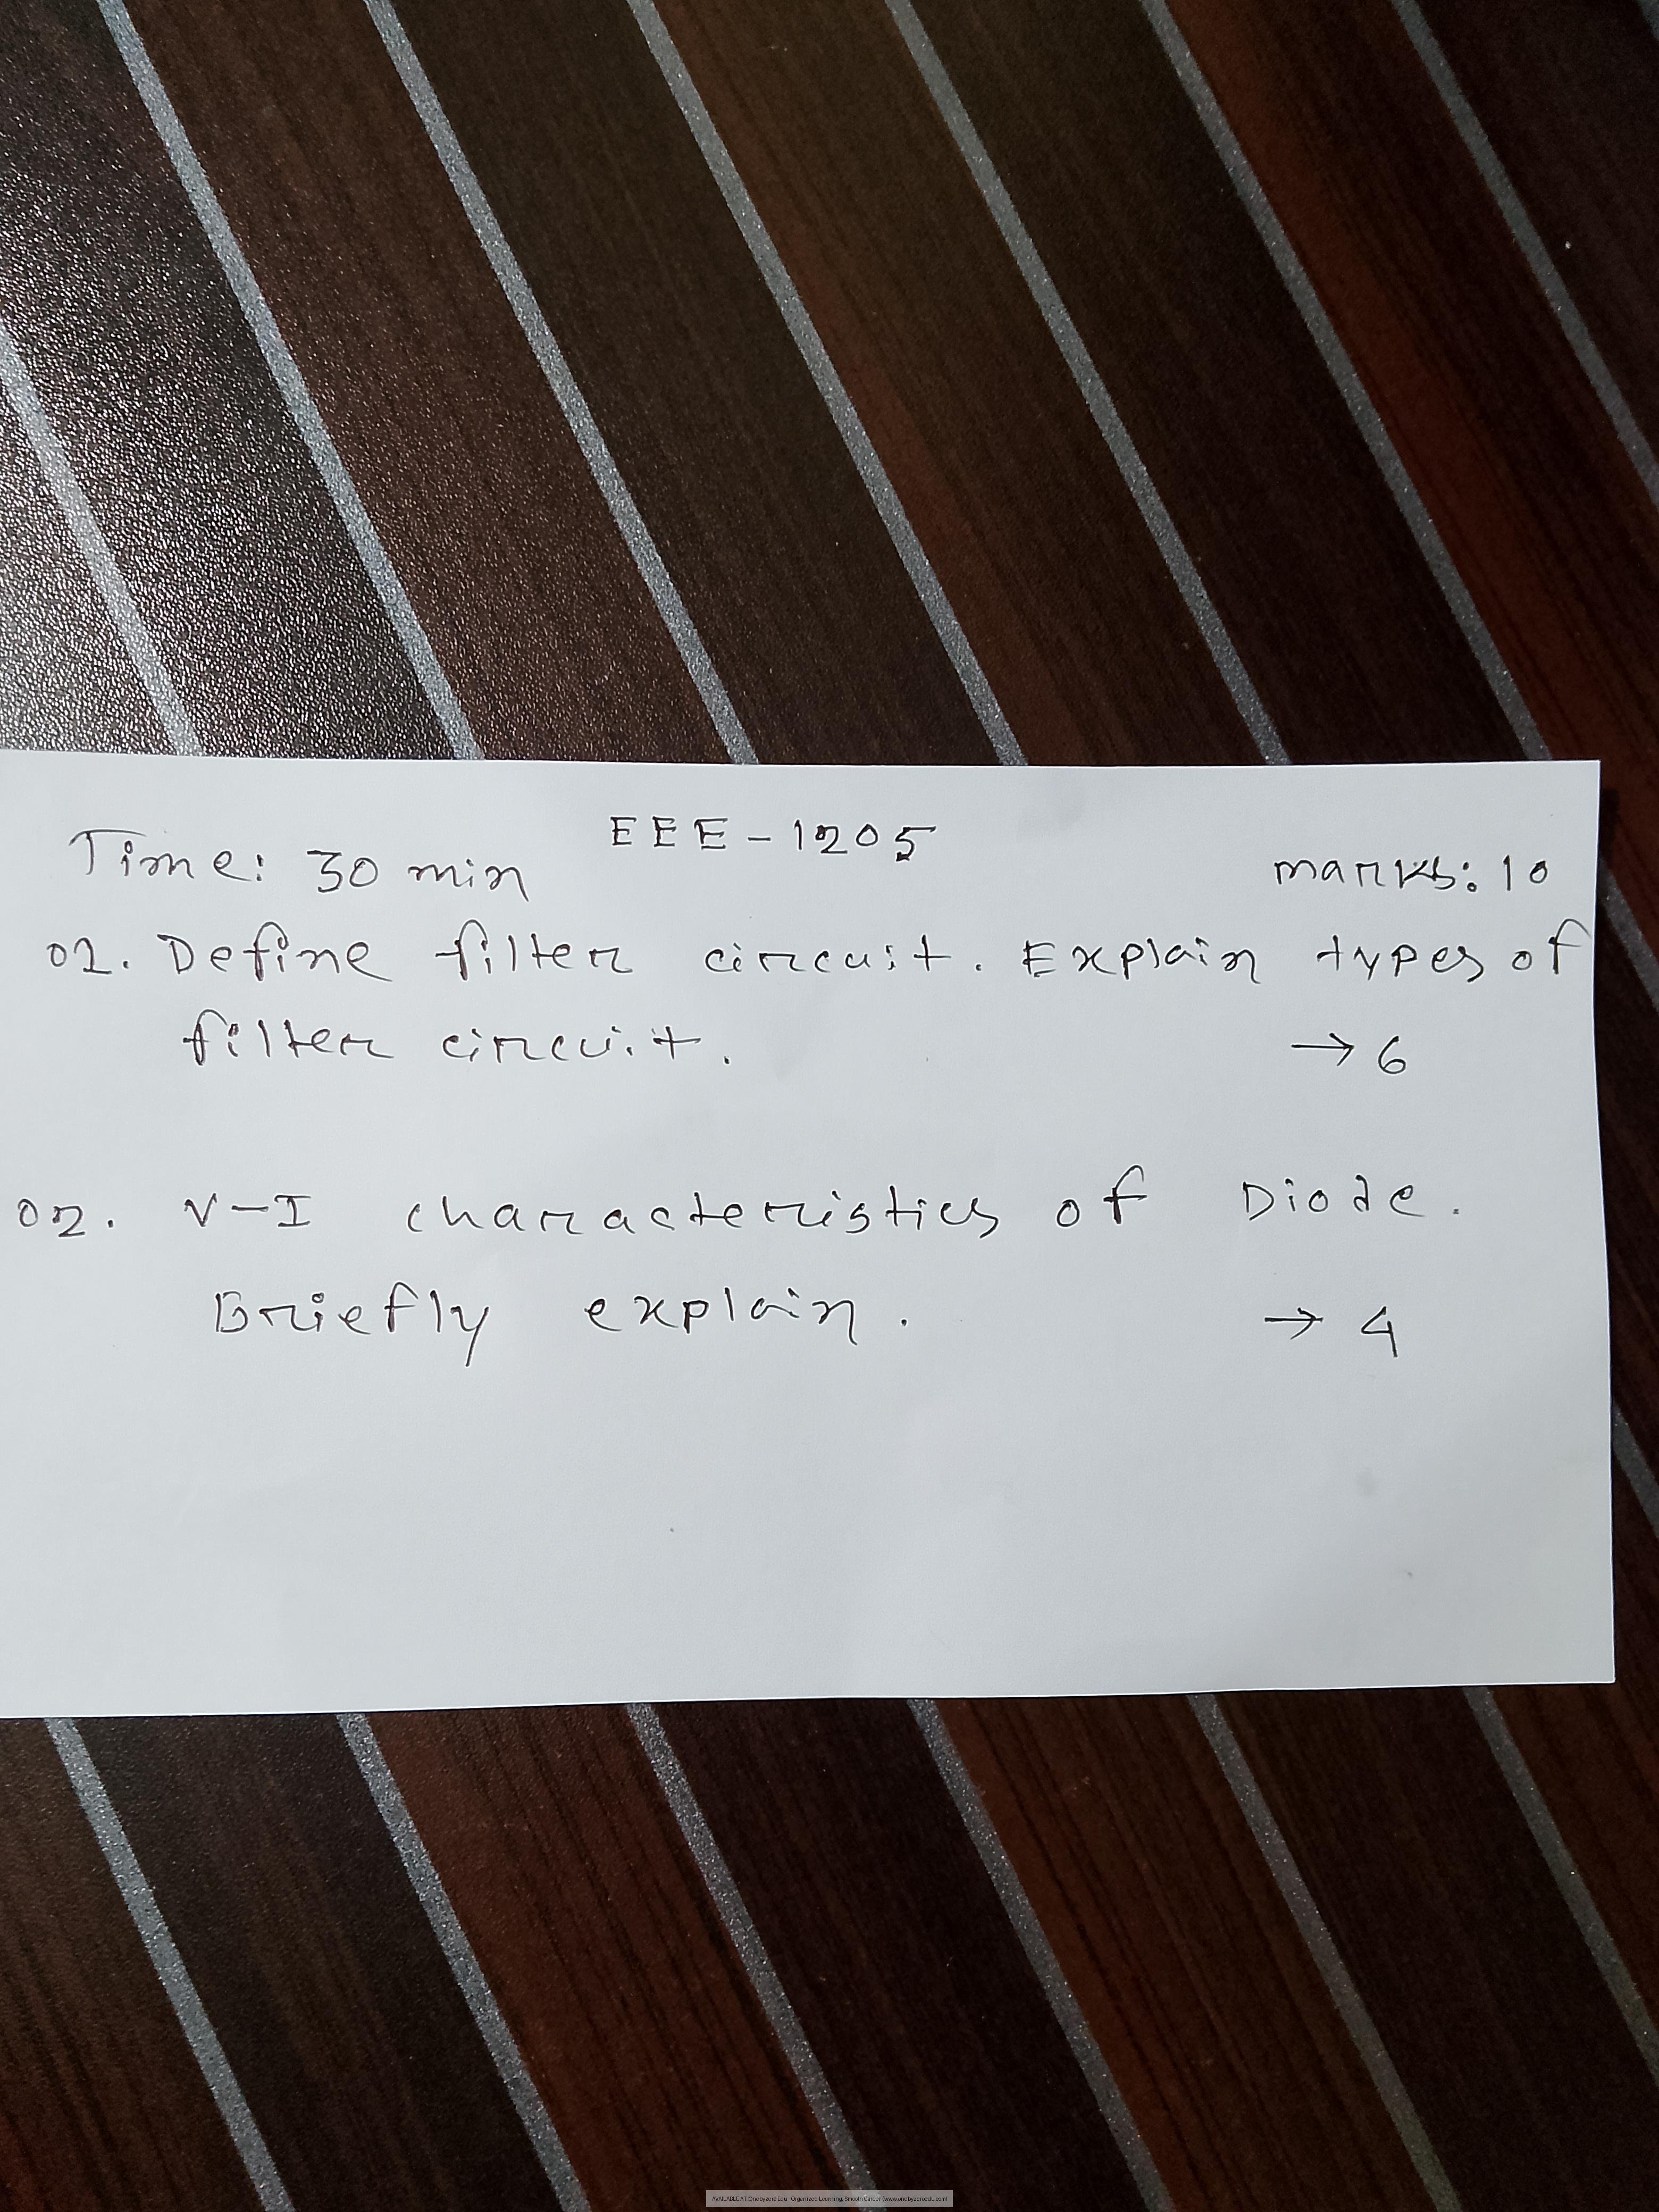 EEE-1205
Time: 30 min
marks: 10
01. Define filter circuit. Explain types of
filter circuit. → 6
02. V-I characteristics of Diode.
Briefly explain. → 4
AVAILABLE AT: Onebyzero Edu - Organized Learning, Smooth Career (www.onebyzeroedu.com)